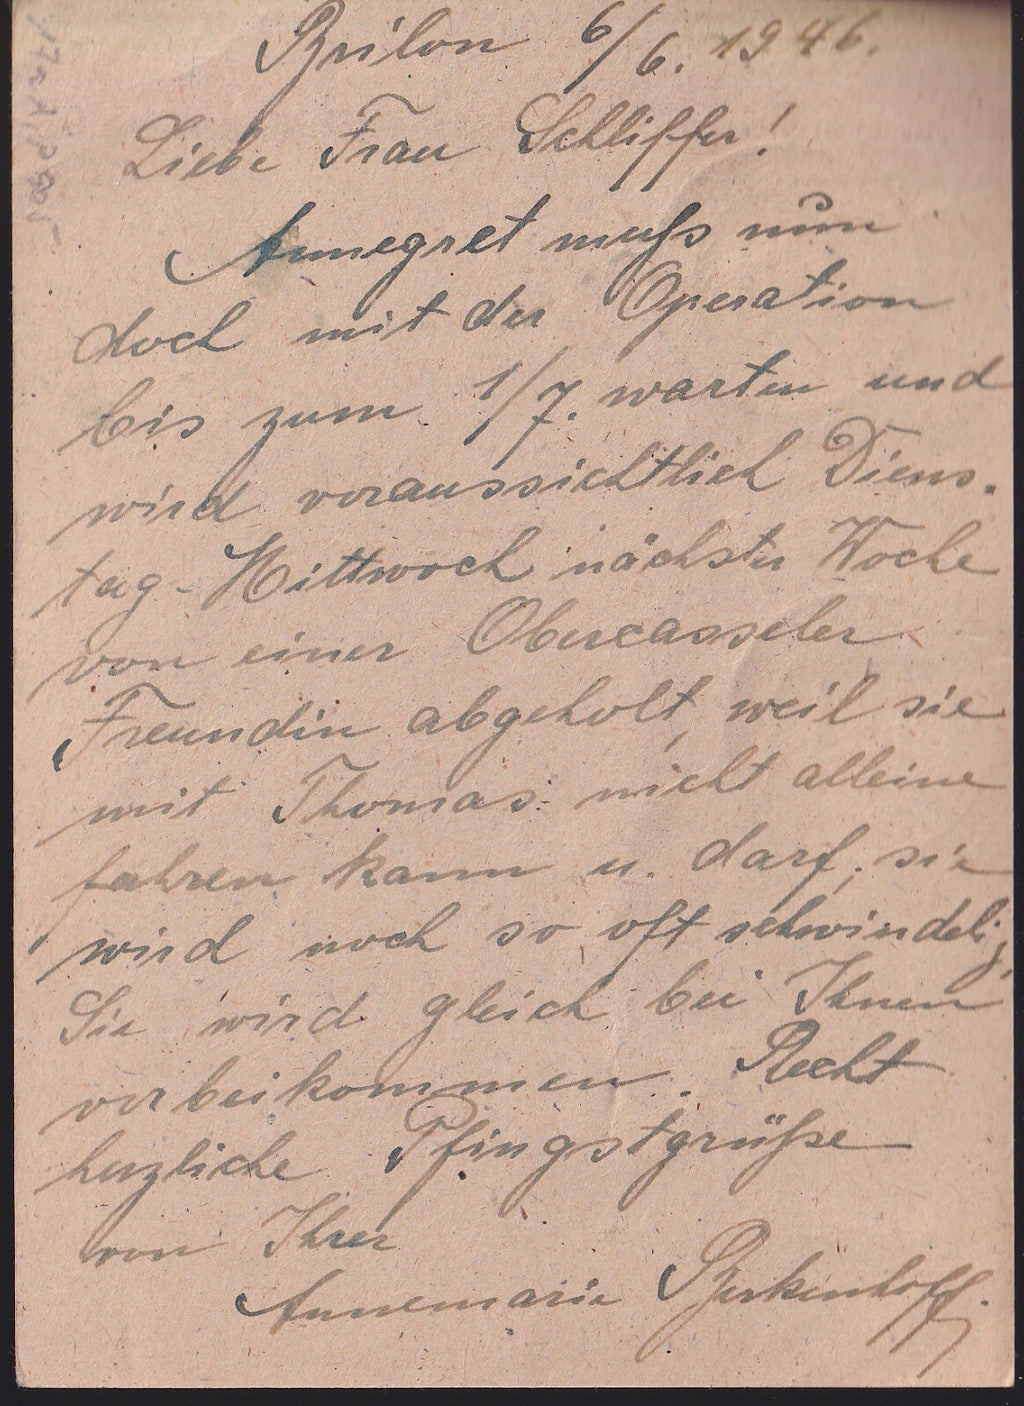 Brilon 6/6. 1946.
Liebe Frau Schliffer!
Annegret muſs nun
doch mit der Operation
bis zum 1/7. warten und
wird voraussichtlich Diens-
tag-Mittwoch nächster Woche
von einer Obercasseler
Freundin abgeholt, weil sie
mit Thomas nicht alleine
fahren kann u. darf, sie
wird noch so oft schwindelig,
Sie wird gleich bei Ihnen
vorbeikommen. Recht
herzliche Pfingstgrüſse
von Ihrer
Annemarie Berkenhoff.